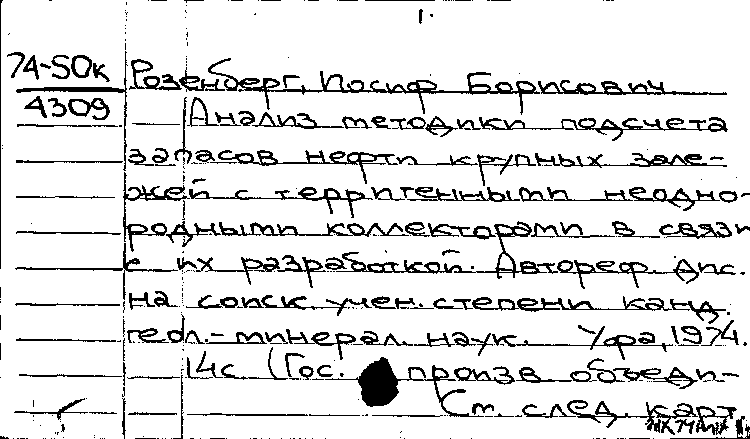 1.
74-50к Розенберг, Иосиф Борисович.
4309 Анализ методики подсчета
запасов нефти крупных зале-
жей с терригенными неодно-
родными коллекторами в связи
с их разработкой. Автореф. дис.
на соиск. учен. степени канд.
геол.-минерал. наук. Уфа, 1974.
14с (Гос. произв объеди-
См. след. карт.